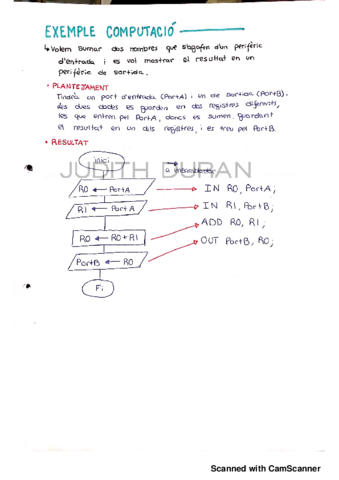 EXEMPLE COMPUTACIÓ
↳ Volem sumar dos nombres que s'agafin d'un perifèric
d'entrada i es vol mostrar el resultat en un
perifèric de sortida.
• PLANTEJAMENT
Tindrà un port d'entrada (PortA) i un de sortida (PortB).
les dues dades es guarden en dos registres diferents,
les que entren pel PortA, doncs es sumen, guardant
el resultat en un dels registres, i es treu pel PortB.
• RESULTAT
inici
a
JUDITH DURAN
R0 ← PortA → IN R0, PortA;
R1 ← PortA → IN R1, PortB;
R0 ← R0+R1 → ADD R0, R1;
PortB ← R0 → OUT PortB, R0;
Fi
Scanned with CamScanner